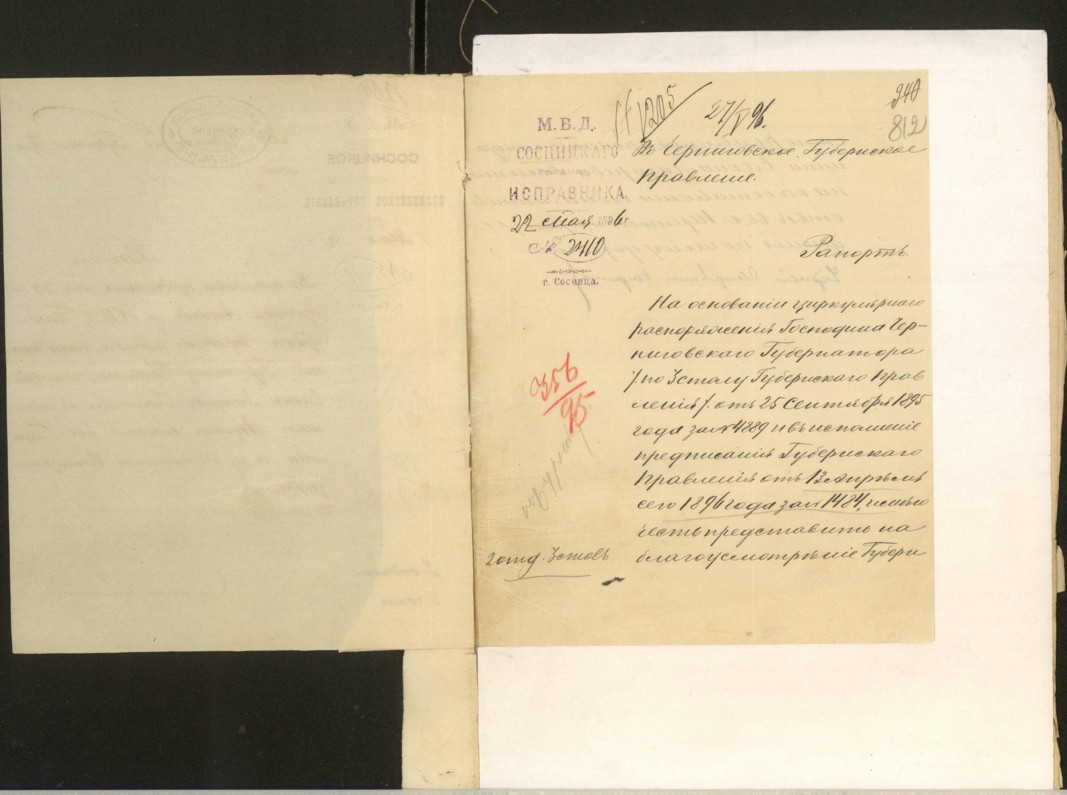 240
812
11205
27/V 96.
М. В. Д.
СОСНИЦКАГО
ИСПРАВНИКА.
22 Мая 1896 г.
№ 2410
г. Сосница.
Въ Черниговское Губернское
Правление.
Рапортъ.
На основаніи циркулярнаго
распоряженія Господина Чер-
ниговскаго Губернатора
/по 3 столу Губернскаго Прав
ленія/. отъ 25 Сентября 1895
года за № 4889 и въ исполненіе
предписанія Губернскаго
Правленія отъ 13 Апрѣля
сего 1896 года за № 1484, имѣю
честь представить на
благоусмотрѣніе Губерн
356
95
2 отд. 3 столъ